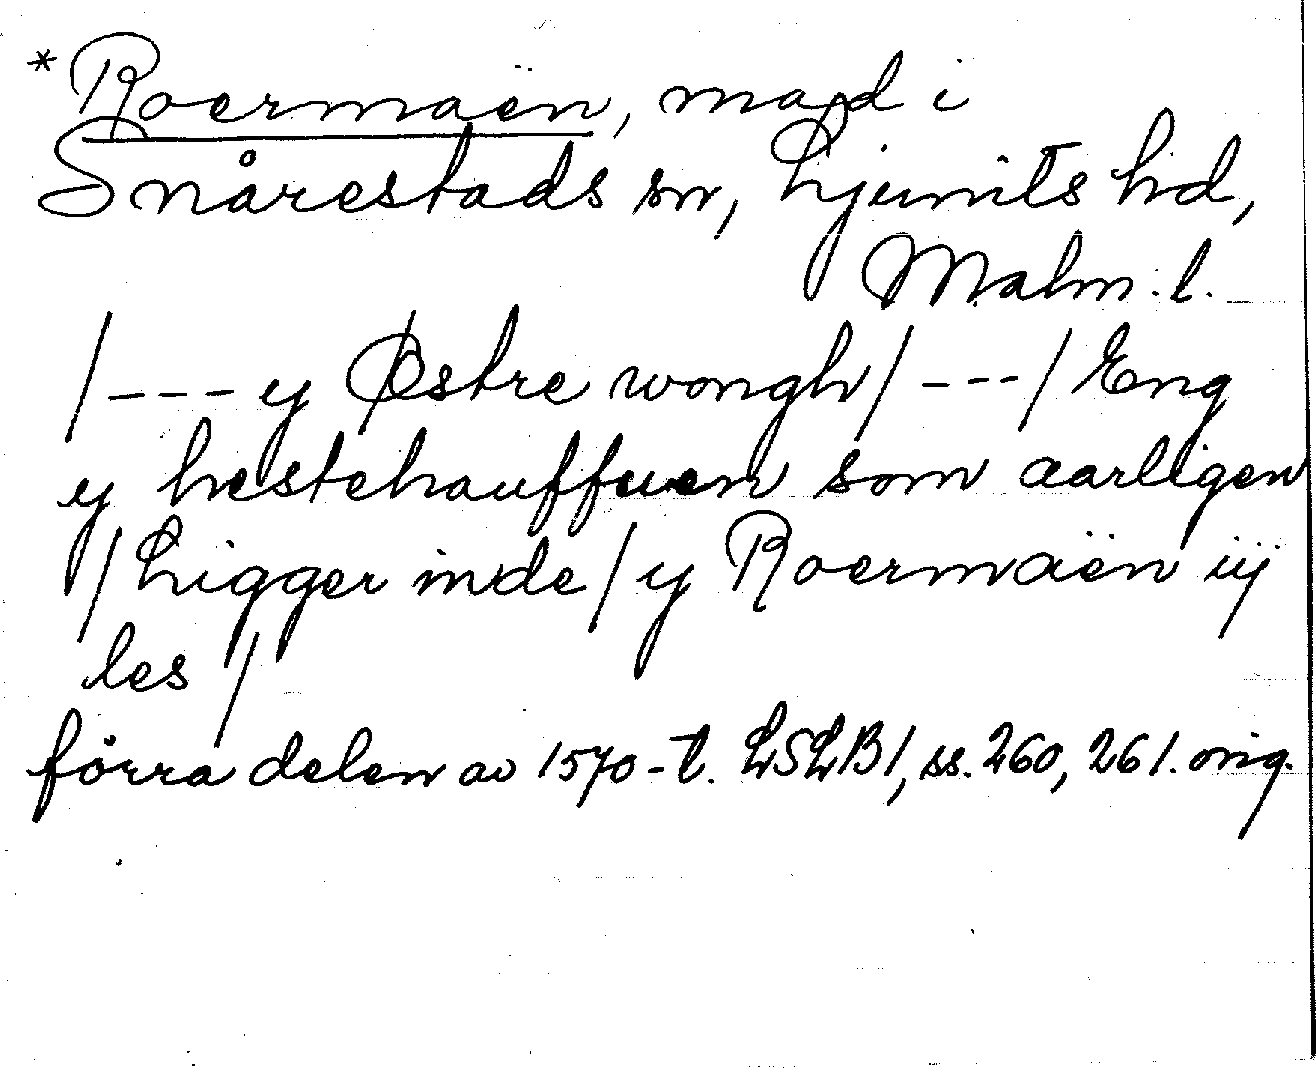 *Roermaen, mad i
Snårestads sn, Ljunits hd,
Malm. l.
/---y Østre wongh/---/Eng
y hestehauffuen som aarligen
/Ligger inde/y Roermäen iij
les/
förra delen av 1570-t. LSLB1, ss. 260, 261. orig.